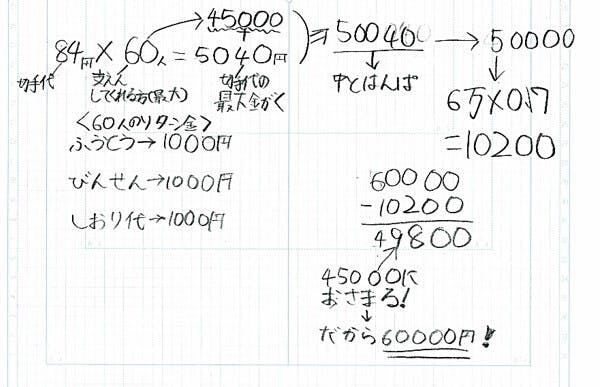 45000
84円×60人=5040円 ⇒ 50040 → 50000
切手代 支えん してくれる方(最大) 切手代の 最大金がく
中とはんぱ
<60人のリターン金>
ふうとう→1000円
びんせん→1000円
しおり代→1000円
6万×0.17
=10200
60000
-10200
49800
45000に
おさまる!
だから60000円!